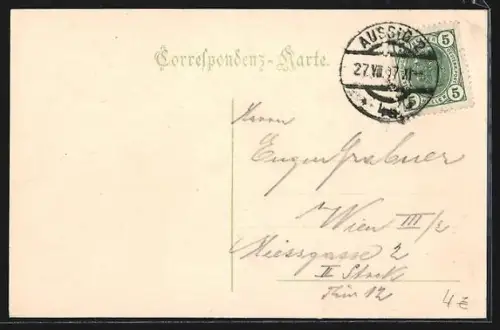 Correspondenz-Karte.
AUSSIG 2
27.VII.07
5
5
5
Herrn
Eugen Grabner
Wien III/2
Hiessgasse 2
II Stock
Tür 12
4 €